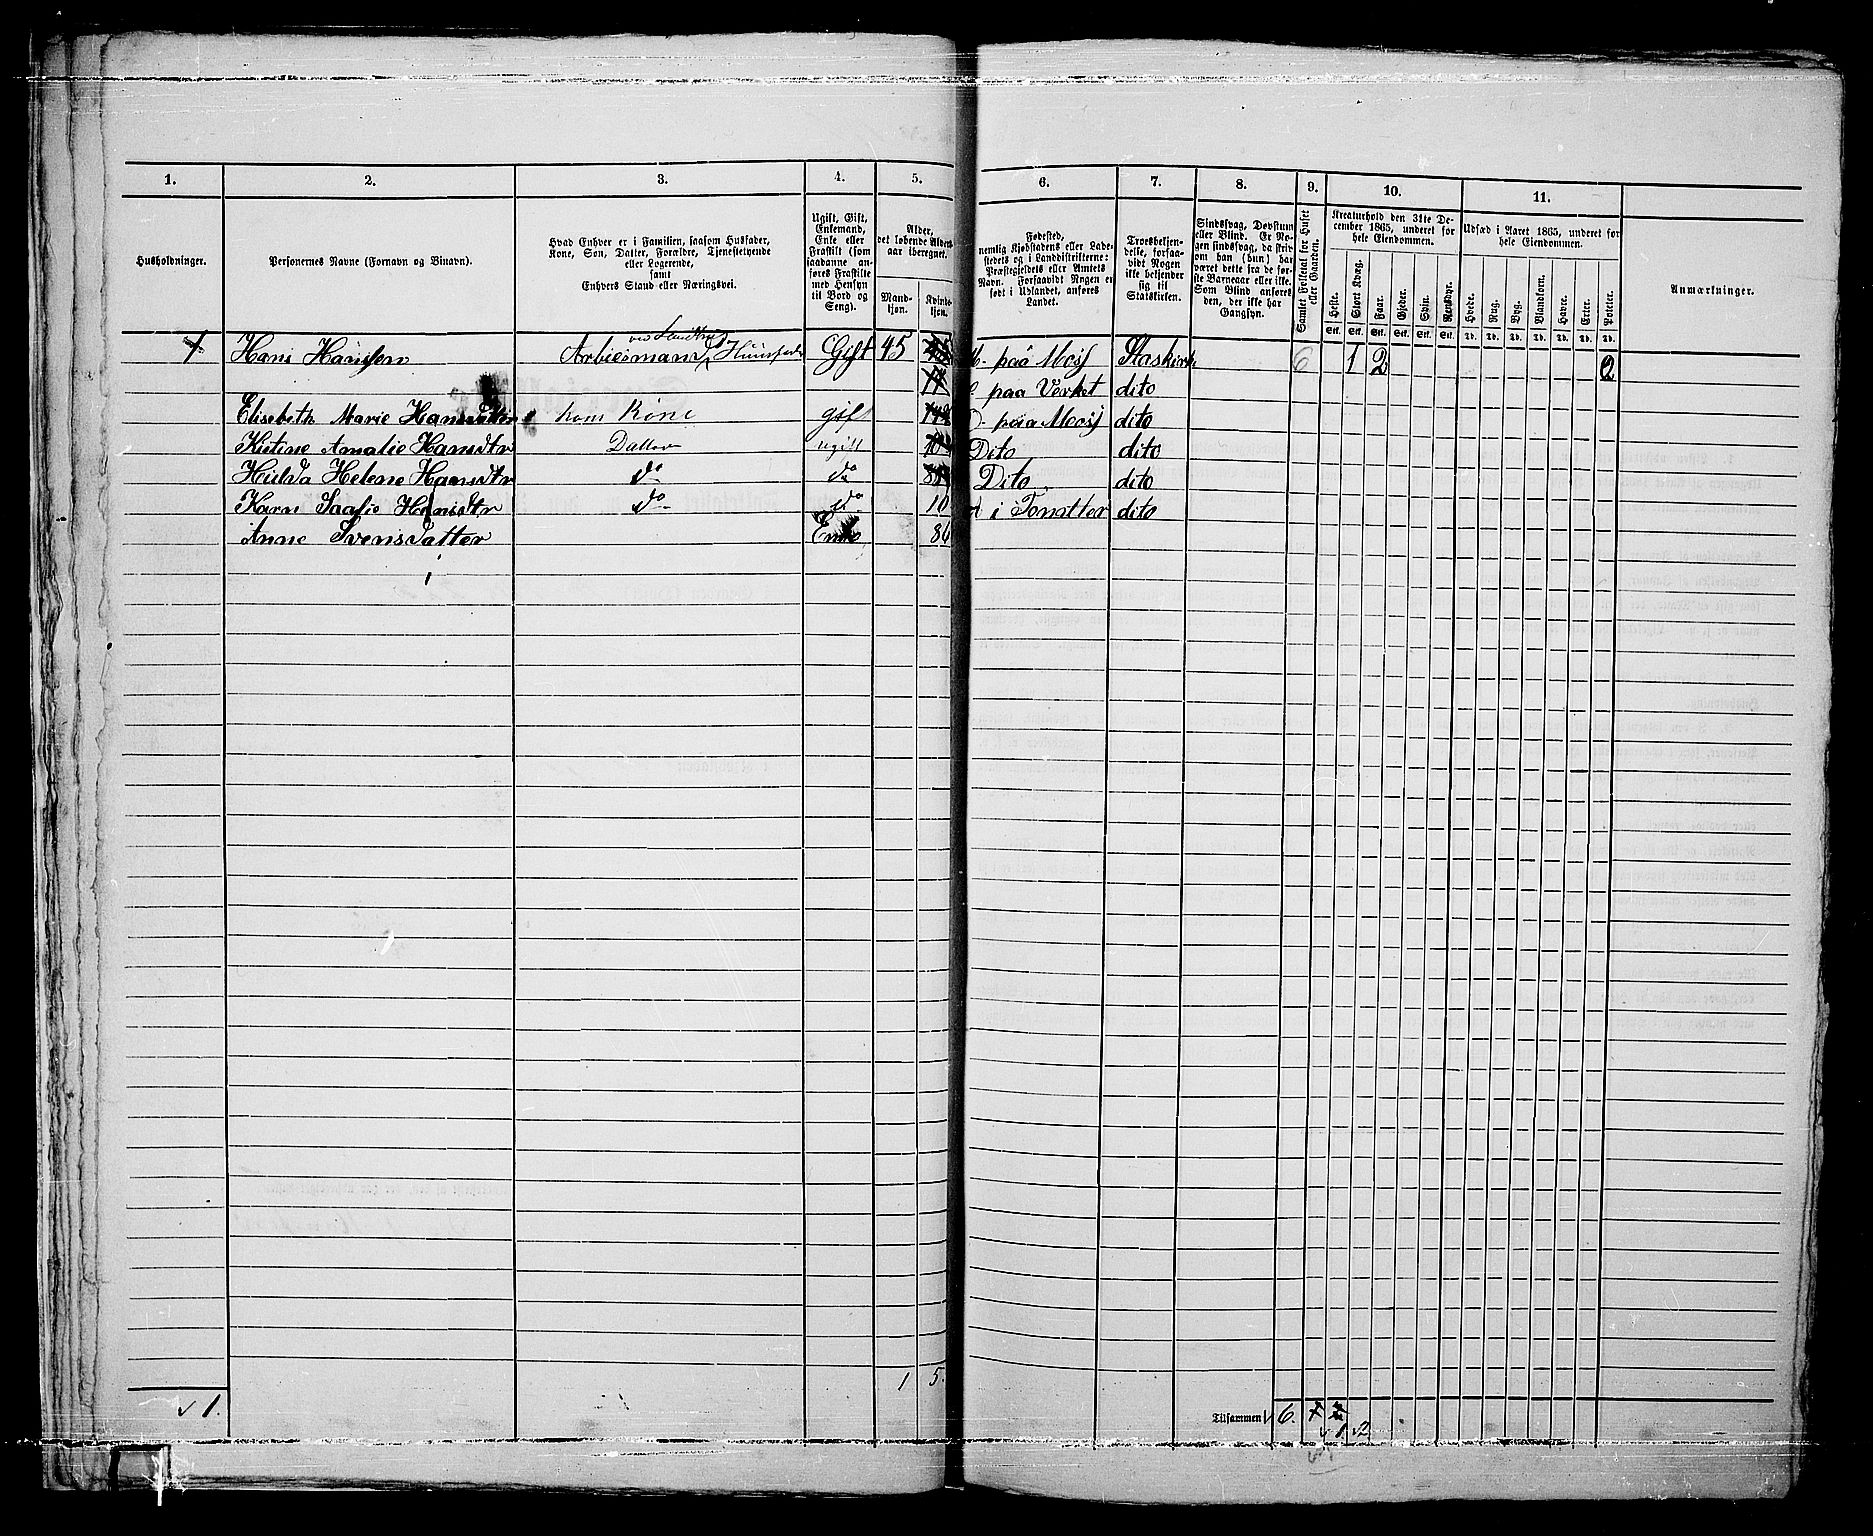 1. 2. 3. 4. 5. 6. 7. 8. 9. 10. 11.
Husholdninger.
Personernes Navne (Fornavn og Binavn).
Hvad Enhver er i Familien, saasom Husfader,
Kone, Søn, Datter, Forældre, Tjenestetyende
eller Logerende,
samt
Enhvers Stand eller Næringsvei.
Ugift, Gift,
Enkemand,
Enke eller
Fraskilt (som
saadanne an-
føres Fraskilte
med Hensyn
til Bord og
Seng).
Alder,
det løbende Alders-
aar iberegnet.
Mand-
kjøn.
Kvinde-
kjøn.
Fødested,
nemlig Kjøbstadens eller Lade-
stedets og i Landdistrikterne:
Præstegjeldets eller Amtets
Navn. Forsaavidt Nogen er
født i Udlandet, anføres
Landet.
Troesbekjen-
delse, forsaa-
vidt Nogen
ikke bekjender
sig til
Statskirken.
Sindssvag, Døvstum
eller Blind. Er No-
gen sindssvag, da skrid
om han (hun) har
været dette fra de før-
ste Barneaar eller ikke.
Som Blind anføres
den, der ikke har
Gangsyn.
Samlet Folketal for Huset
eller Gaarden.
Kreaturhold den 31te De-
cember 1865, underet for
hele Eiendommen.
Heste. Stort Kvæg. Faar. Gjeder. Svin. Rensdyr.
Stk. Stk. Stk. Stk. Stk. Stk.
Udsæd i Aaret 1865, underet for
hele Eiendommen.
Hvede. Rug. Byg. Blandkorn. Havre. Erter. Poteter.
Td. Td. Td. Td. Td. Td. Td.
Anmærkninger.
Hans Hansen Gift 45 paa Moss 6 1 2 2
paa Verket dito
Elisabeth Marie hans Kone gift paa Moss dito
Kistine Amalie Hansdtr Datter ugift Dito dito
Hulda Helene Hansdtr do do Dito dito
Karn Hansdtr do do 10 dito
Anne Svensdatter Enke 86
1 5
1.
Tilsammen 6.
1 2